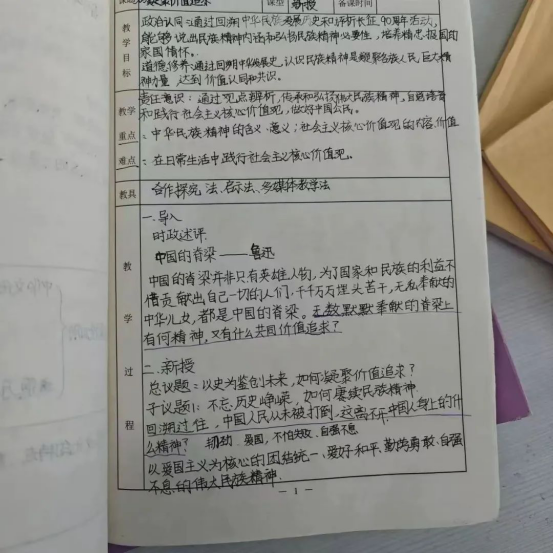 凝聚价值追求 课型 新授 备课时间
教学目标
政治认同:通过回溯中华民族发展历史和评析长征90周年活动,
能够说出民族精神内涵和弘扬民族精神必要性,培养精忠报国的
家国情怀。
道德修养:通过回溯中华发展史,认识民族精神是凝聚各族人民巨大精
神力量 达到价值认同和共识。
责任意识:通过观点辨析,传承和弘扬伟大民族精神,自觉培育
和践行社会主义核心价值观,做好中国公民。
教学
重点:中华民族精神的含义、意义;社会主义核心价值观的内容、价值
难点:在日常生活中践行社会主义核心价值观。
教具 合作探究法、启示法、多媒体教学法
教学过程
一.导入
时政述评
中国的脊梁——鲁迅
中国的脊梁并非只有英雄人物,为了国家和民族的利益不
惜贡献出自己一切的人们,千千万万埋头苦干,无私奉献的
中华儿女,都是中国的脊梁。无数默默奉献的脊梁上
有何精神,又有什么共同价值追求?
二.新授
总议题:以史为鉴创未来,如何凝聚价值追求?
子议题1:不忘历史峥嵘,如何赓续民族精神
回溯过往,中国人民从未被打倒,这离不开中国人身上的什
么精神? 爱国,不怕失败,自强不息
以爱国主义为核心的团结统一、爱好和平、勤劳勇敢、自强
不息的伟大民族精神.
-1-